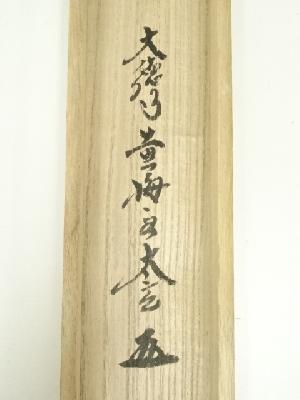 大徳寺黄梅院太玄